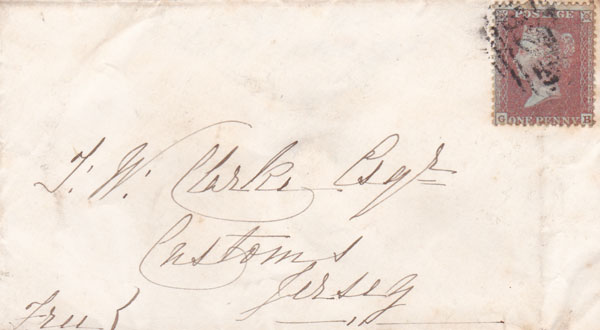 POSTAGE
G ONE PENNY H
T. W. Clarke Esqr
Customs
Jersey